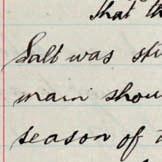 that th
Salt was sti
main shou
season of